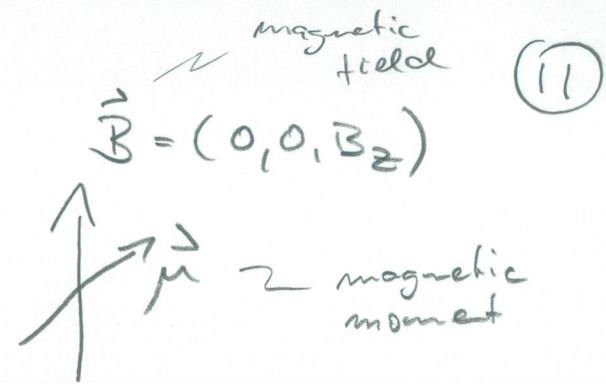 magnetic
field
11
\vec{B} = (0, 0, B_z)
\vec{μ} magnetic
moment